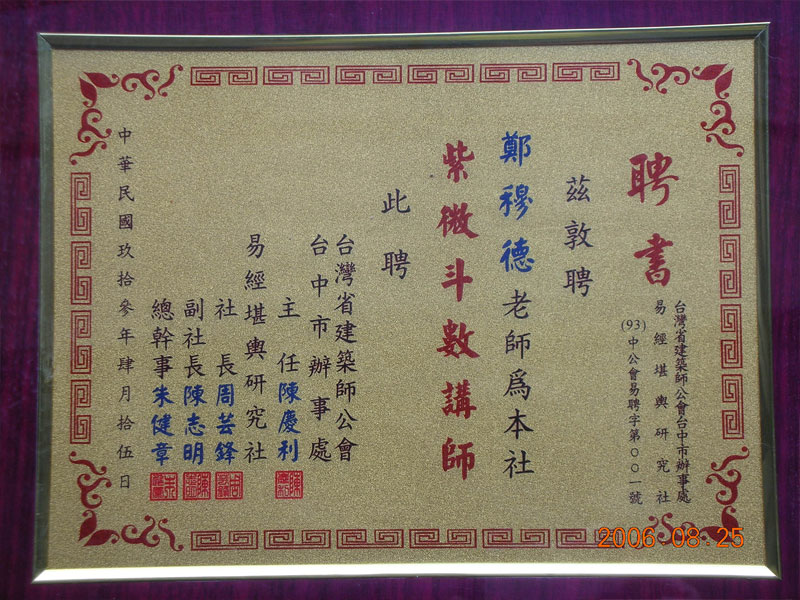 聘書
台灣省建築師公會台中市辦事處
易經堪輿研究社
(93)中公會易聘字第〇〇一號
茲敦聘
鄭穆德老師為本社
紫微斗數講師
此聘
台灣省建築師公會
台中市辦事處
主任陳慶利
易經堪輿研究社
社長周芸鋒
副社長陳志明
總幹事朱健章
中華民國玖拾參年肆月拾伍日
2006-08-25